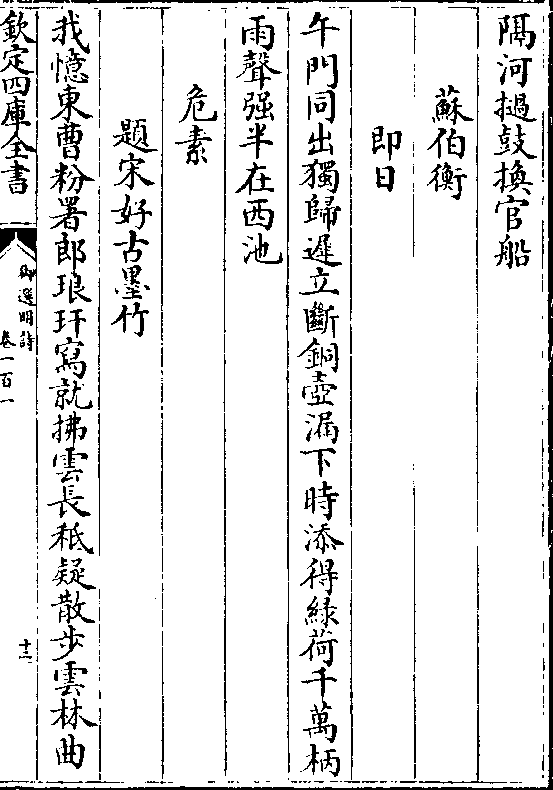 隔河撾鼓換官船
蘇伯衡
即日
午門同出獨歸遲立斷銅壺漏下時添得緑荷千萬柄
雨聲强半在西池
危素
題宋好古墨竹
我憶東曹粉署郎琅玕寫就拂雲長秪疑散步雲林曲
欽定四庫全書
御選明詩
卷一百一
十三